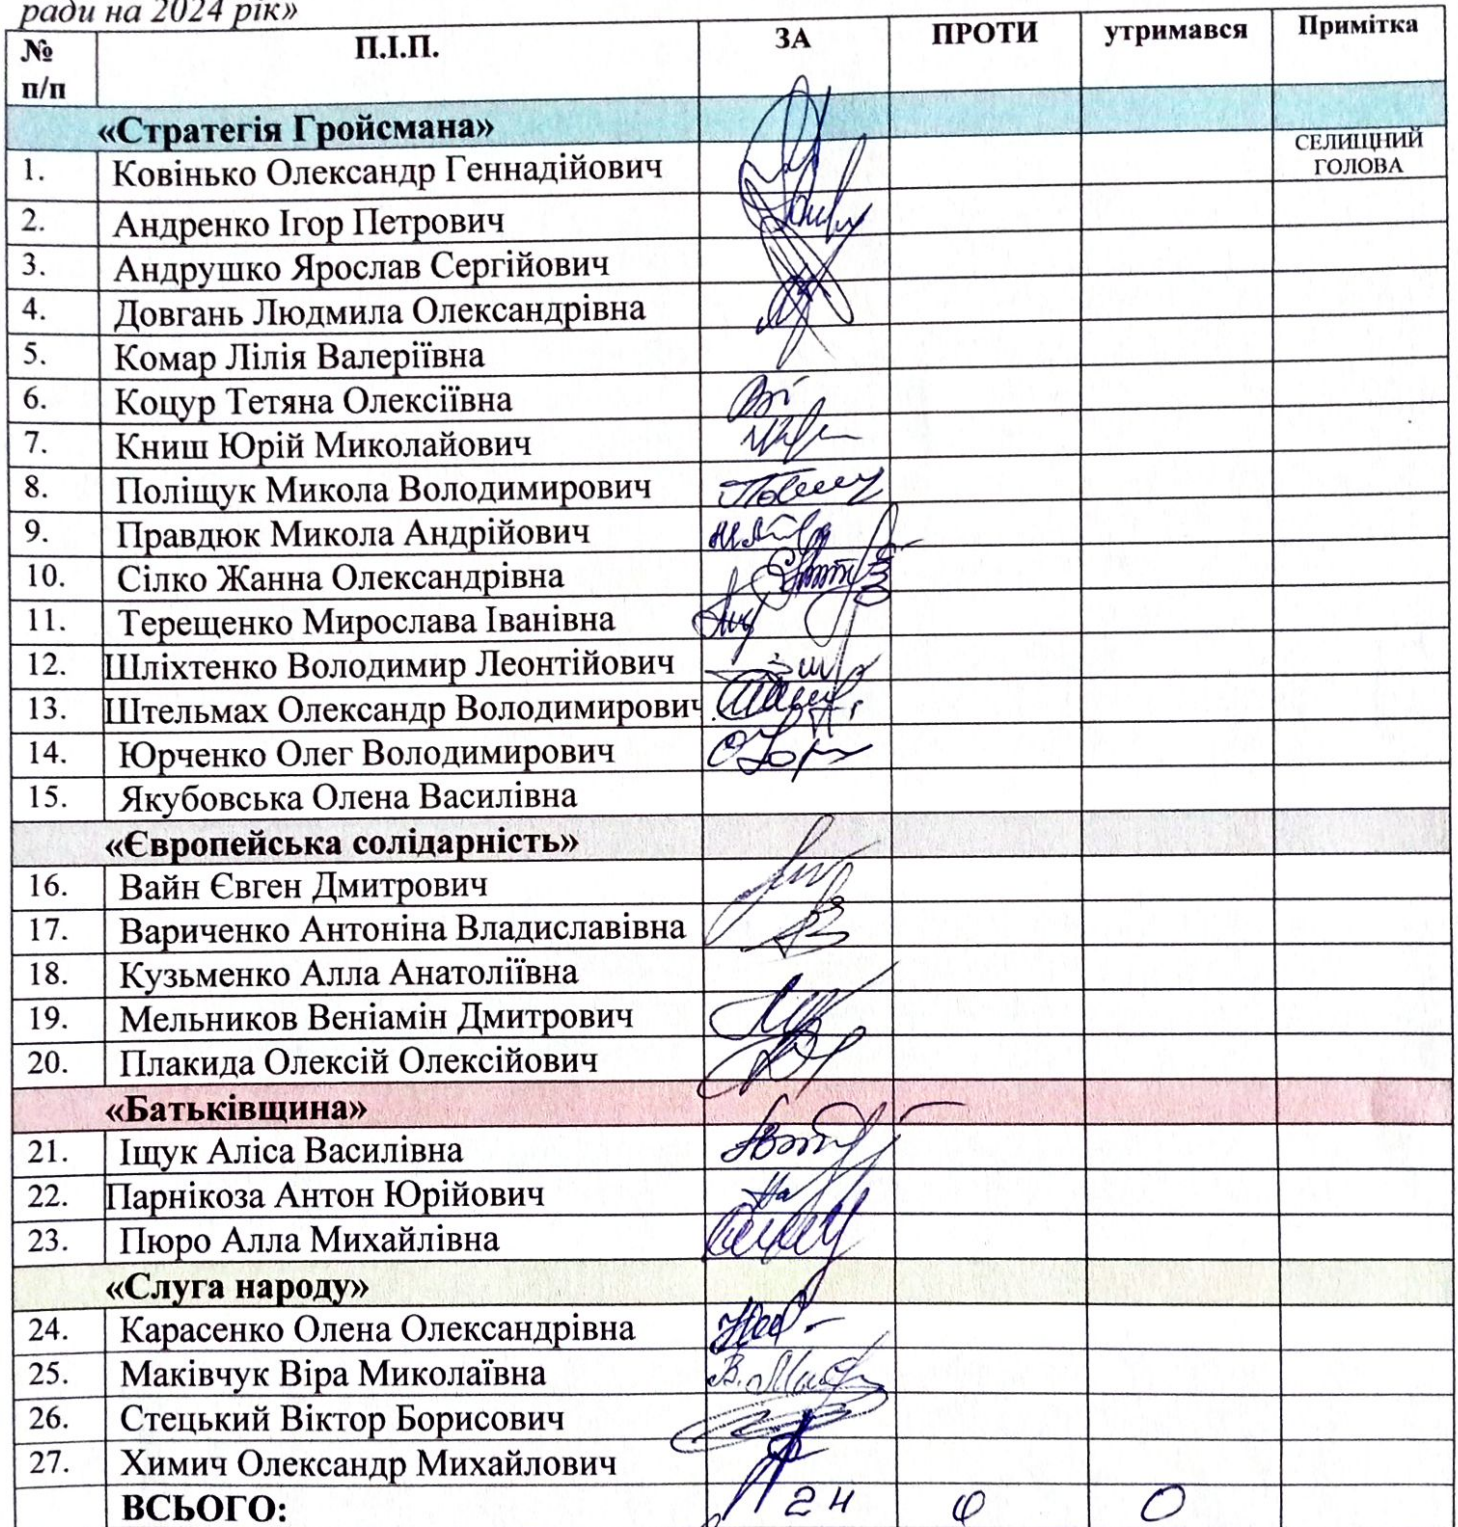 ради на 2024 рік»
№ п/п П.І.П. ЗА ПРОТИ утримався Примітка
«Стратегія Гройсмана»
1. Ковінько Олександр Геннадійович СЕЛИЩНИЙ ГОЛОВА
2. Андренко Ігор Петрович
3. Андрушко Ярослав Сергійович
4. Довгань Людмила Олександрівна
5. Комар Лілія Валеріївна
6. Коцур Тетяна Олексіївна
7. Книш Юрій Миколайович
8. Поліщук Микола Володимирович
9. Правдюк Микола Андрійович
10. Сілко Жанна Олександрівна
11. Терещенко Мирослава Іванівна
12. Шліхтенко Володимир Леонтійович
13. Штельмах Олександр Володимирович
14. Юрченко Олег Володимирович
15. Якубовська Олена Василівна
«Європейська солідарність»
16. Вайн Євген Дмитрович
17. Вариченко Антоніна Владиславівна
18. Кузьменко Алла Анатоліївна
19. Мельников Веніамін Дмитрович
20. Плакида Олексій Олексійович
«Батьківщина»
21. Іщук Аліса Василівна
22. Парнікоза Антон Юрійович
23. Пюро Алла Михайлівна
«Слуга народу»
24. Карасенко Олена Олександрівна
25. Маківчук Віра Миколаївна
26. Стецький Віктор Борисович
27. Химич Олександр Михайлович
ВСЬОГО: 24 0 0